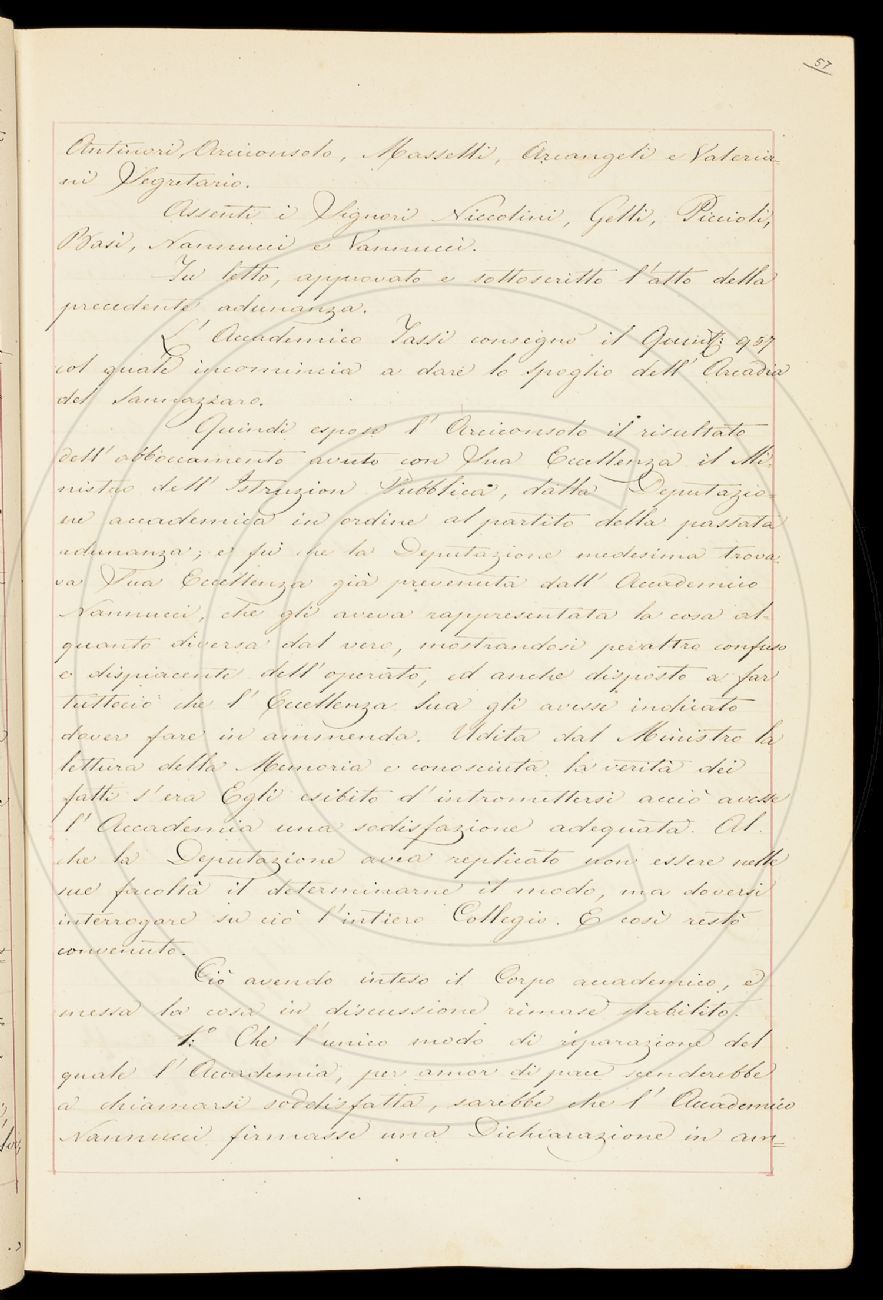 57
Antinori, Arciconsolo, Masselli, Arcangeli e Valeria=
ni Segretario.
Assenti i Signori Niccolini, Gelli, Piccioli,
Basi, Nannucci e Vannucci.
Fu letto, approvato e sottoscritto l'atto della
precedente adunanza.
L'Accademico Tassi consegnò il Quint: 957
col quale incomincia a dare lo spoglio dell'Arcadia
del Sannazzaro.
Quindi espose l'Arciconsolo il risultato
dell'abboccamento avuto con Sua Eccellenza il Mi=
nistro dell'Istruzion Pubblica, dalla Deputazio=
ne accademica in ordine al partito della passata
adunanza; e fu che la Deputazione medesima trova=
va Sua Eccellenza già prevenuta dall'Accademico
Nannucci, che gli aveva rappresentata la cosa al=
quanto diversa dal vero, mostrandosi peraltro confuso
e dispiacente dell'operato, ed anche disposto a far
tuttociò che l'Eccellenza Sua gli avesse indicato
dover fare in ammenda. Udita dal Ministro la
lettura della Memoria e conosciuta la verità dei
fatti s'era Egli esibito d'intromettersi acciò avesse
l'Accademia una sodisfazione adeguata. Al
che la Deputazione avea replicato non essere nelle
sue facoltà il determinarne il modo, ma doversi
interrogare su ciò l'intiero Collegio. E così restò
convenuto.
Ciò avendo inteso il Corpo accademico, e
messa la cosa in discussione rimase stabilito:
1:° Che l'unico modo di riparazione del
quale l'Accademia, per amor di pace scenderebbe
a chiamarsi soddisfatta, sarebbe che l'Accademico
Nannucci firmasse una Dichiarazione in am=